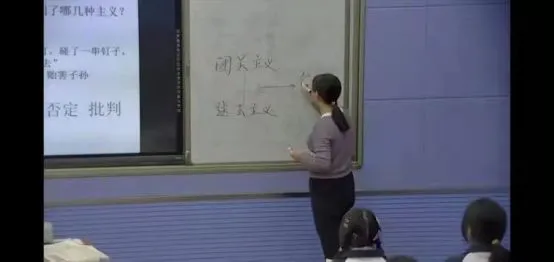 了哪几种主义？
碰了一串钉子，
去”
贻害子孙
否定 批判
闭关主义
送去主义